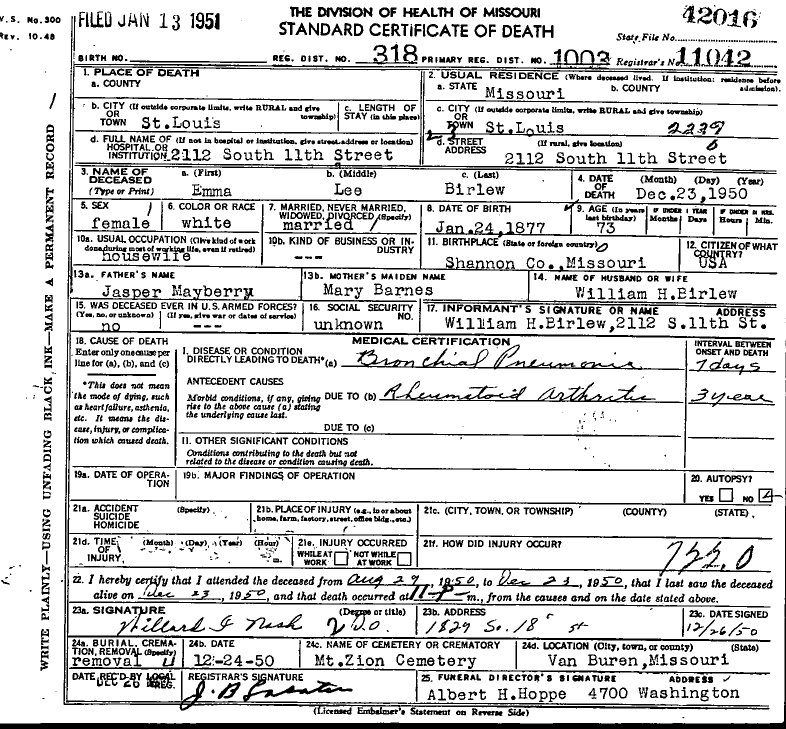 V. S. No. 300
Rev. 10-48
FILED JAN 13 1951
THE DIVISION OF HEALTH OF MISSOURI
STANDARD CERTIFICATE OF DEATH
42016
State File No.
BIRTH NO. REG. DIST. NO. 318 PRIMARY REG. DIST. NO. 1003 Registrar's No. 11042
WRITE PLAINLY—USING UNFADING BLACK INK—MAKE A PERMANENT RECORD
1. PLACE OF DEATH
a. COUNTY
2. USUAL RESIDENCE (Where deceased lived. If institution: residence before admission).
a. STATE Missouri b. COUNTY
b. CITY (If outside corporate limits, write RURAL and give township) OR TOWN St.Louis
c. LENGTH OF STAY (in this place)
c. CITY (If outside corporate limits, write RURAL and give township) OR TOWN St.Louis 2239
d. FULL NAME OF (If not in hospital or institution, give street address or location) HOSPITAL OR INSTITUTION 2112 South 11th Street
d. STREET ADDRESS (If rural, give location) 2112 South 11th Street
3. NAME OF DECEASED (Type or Print)
a. (First) Emma
b. (Middle) Lee
c. (Last) Birlew
4. DATE OF DEATH (Month) (Day) (Year) Dec.23,1950
5. SEX female
6. COLOR OR RACE white
7. MARRIED, NEVER MARRIED, WIDOWED, DIVORCED (Specify) married
8. DATE OF BIRTH Jan.24,1877
9. AGE (In years last birthday) 73
IF UNDER 1 YEAR Months Days
IF UNDER 24 HRS. Hours Min.
10a. USUAL OCCUPATION (Give kind of work done during most of working life, even if retired) housewife
10b. KIND OF BUSINESS OR INDUSTRY ---
11. BIRTHPLACE (State or foreign country) Shannon Co.,Missouri
12. CITIZEN OF WHAT COUNTRY? USA
13a. FATHER'S NAME Jasper Mayberry
13b. MOTHER'S MAIDEN NAME Mary Barnes
14. NAME OF HUSBAND OR WIFE William H.Birlew
15. WAS DECEASED EVER IN U.S. ARMED FORCES? (Yes, no, or unknown) (If yes, give war or dates of service) no ---
16. SOCIAL SECURITY NO. unknown
17. INFORMANT'S SIGNATURE OR NAME ADDRESS
William H.Birlew,2112 S.11th St.
18. CAUSE OF DEATH
Enter only one cause per line for (a), (b), and (c)
*This does not mean the mode of dying, such as heart failure, asthenia, etc. It means the disease, injury, or complication which caused death.
MEDICAL CERTIFICATION
INTERVAL BETWEEN ONSET AND DEATH
I. DISEASE OR CONDITION DIRECTLY LEADING TO DEATH* (a) Bronchial Pneumonia 7 days
ANTECEDENT CAUSES
Morbid conditions, if any, giving rise to the above cause (a) stating the underlying cause last.
DUE TO (b) Rheumatoid Arthritis 3 year
DUE TO (c)
II. OTHER SIGNIFICANT CONDITIONS
Conditions contributing to the death but not related to the disease or condition causing death.
19a. DATE OF OPERATION
19b. MAJOR FINDINGS OF OPERATION
20. AUTOPSY?
YES NO
21a. ACCIDENT SUICIDE HOMICIDE (Specify)
21b. PLACE OF INJURY (e.g., in or about home, farm, factory, street, office bldg., etc.)
21c. (CITY, TOWN, OR TOWNSHIP) (COUNTY) (STATE)
21d. TIME OF INJURY (Month) (Day) (Year) (Hour)
21e. INJURY OCCURRED WHILE AT WORK NOT WHILE AT WORK
21f. HOW DID INJURY OCCUR?
722.0
22. I hereby certify that I attended the deceased from Aug 29, 1950, to Dec 23, 1950, that I last saw the deceased
alive on Dec 23, 1950, and that death occurred at m., from the causes and on the date stated above.
23a. SIGNATURE (Degree or title)
Willard G Nash D.O
23b. ADDRESS 1829 So. 18 st
23c. DATE SIGNED 12/26/50
24a. BURIAL, CREMATION, REMOVAL (Specify) removal
24b. DATE 12-24-50
24c. NAME OF CEMETERY OR CREMATORY Mt.Zion Cemetery
24d. LOCATION (City, town, or county) (State) Van Buren,Missouri
DATE REC'D BY LOCAL REG. DEC 26
REGISTRAR'S SIGNATURE
25. FUNERAL DIRECTOR'S SIGNATURE ADDRESS
Albert H.Hoppe 4700 Washington
(Licensed Embalmer's Statement on Reverse Side)